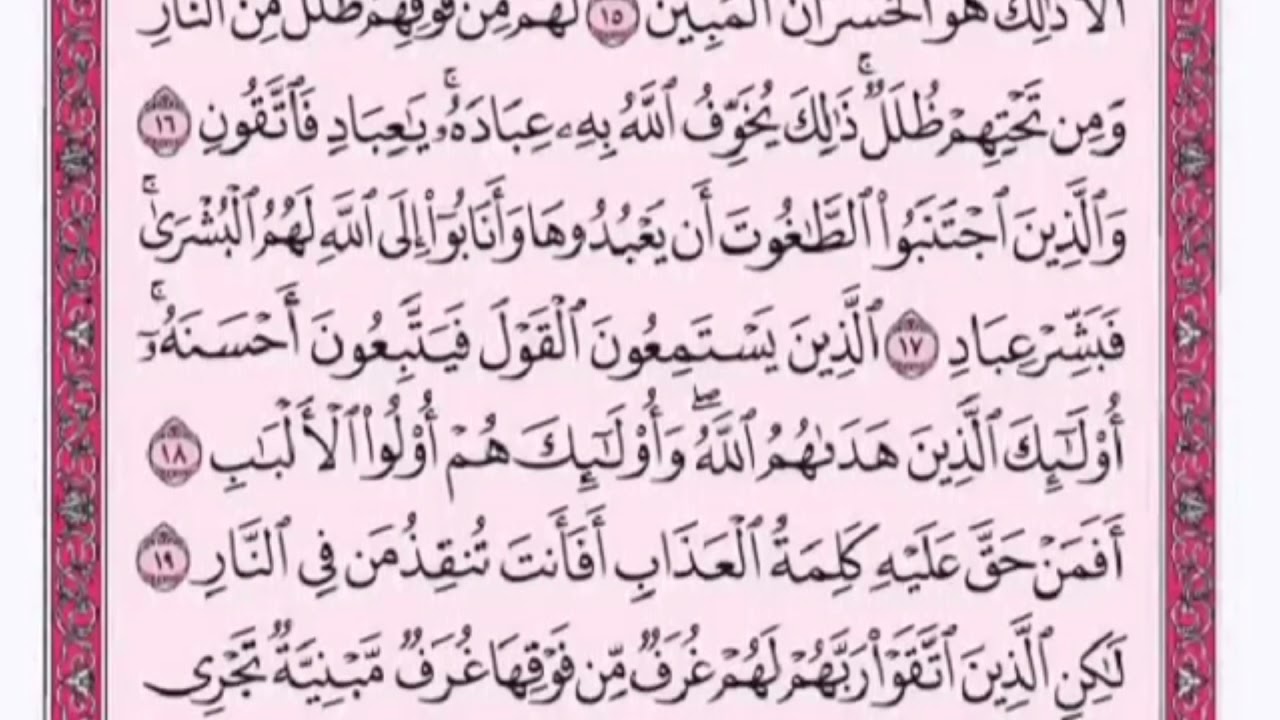 ألا ذلك هو الخسران المبين ١٥ لهم من فوقهم ظلل من النار
وَمِن تَحْتِهِمْ ظُلَلٌۚ ذَٰلِكَ يُخَوِّفُ ٱللَّهُ بِهِۦ عِبَادَهُۥۚ يَٰعِبَادِ فَٱتَّقُونِ ١٦
وَٱلَّذِينَ ٱجْتَنَبُوا۟ ٱلطَّٰغُوتَ أَن يَعْبُدُوهَا وَأَنَابُوٓا۟ إِلَى ٱللَّهِ لَهُمُ ٱلْبُشْرَىٰۚ
فَبَشِّرْ عِبَادِ ١٧ ٱلَّذِينَ يَسْتَمِعُونَ ٱلْقَوْلَ فَيَتَّبِعُونَ أَحْسَنَهُۥٓۚ
أُو۟لَٰٓئِكَ ٱلَّذِينَ هَدَىٰهُمُ ٱللَّهُۖ وَأُو۟لَٰٓئِكَ هُمْ أُو۟لُوا۟ ٱلْأَلْبَٰبِ ١٨
أَفَمَنْ حَقَّ عَلَيْهِ كَلِمَةُ ٱلْعَذَابِ أَفَأَنتَ تُنقِذُ مَن فِى ٱلنَّارِ ١٩
لَٰكِنِ ٱلَّذِينَ ٱتَّقَوْا۟ رَبَّهُمْ لَهُمْ غُرَفٌ مِّن فَوْقِهَا غُرَفٌ مَّبْنِيَّةٌ تَجْرِى